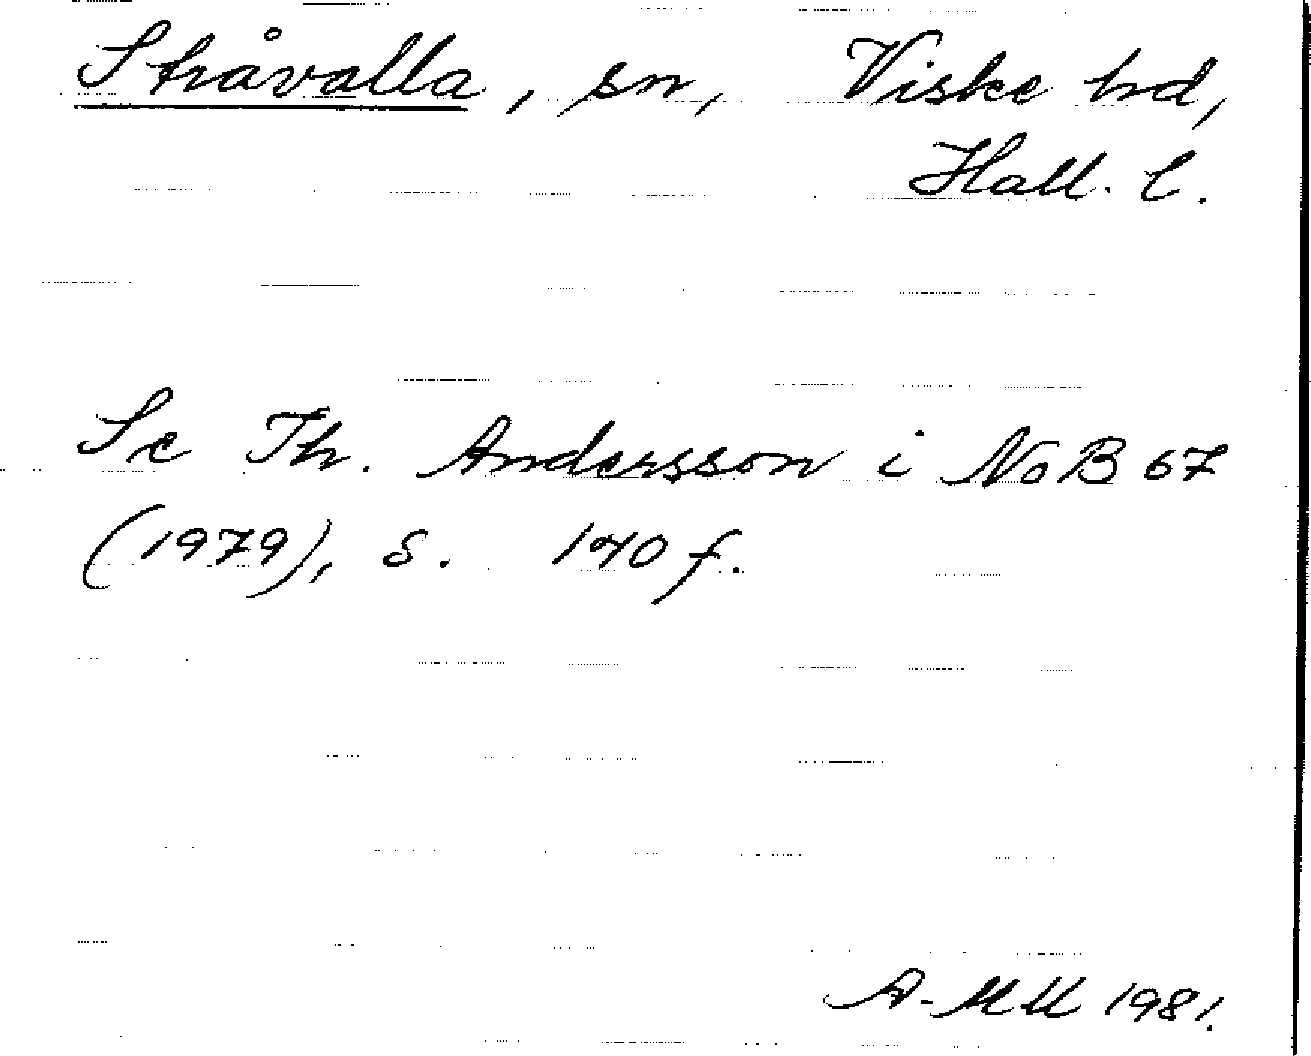 Stråvalla, sn, Viske hd,
Hall. l.
Se Th. Andersson i NoB 67
(1979), s. 170 f.
A-MU 1981.